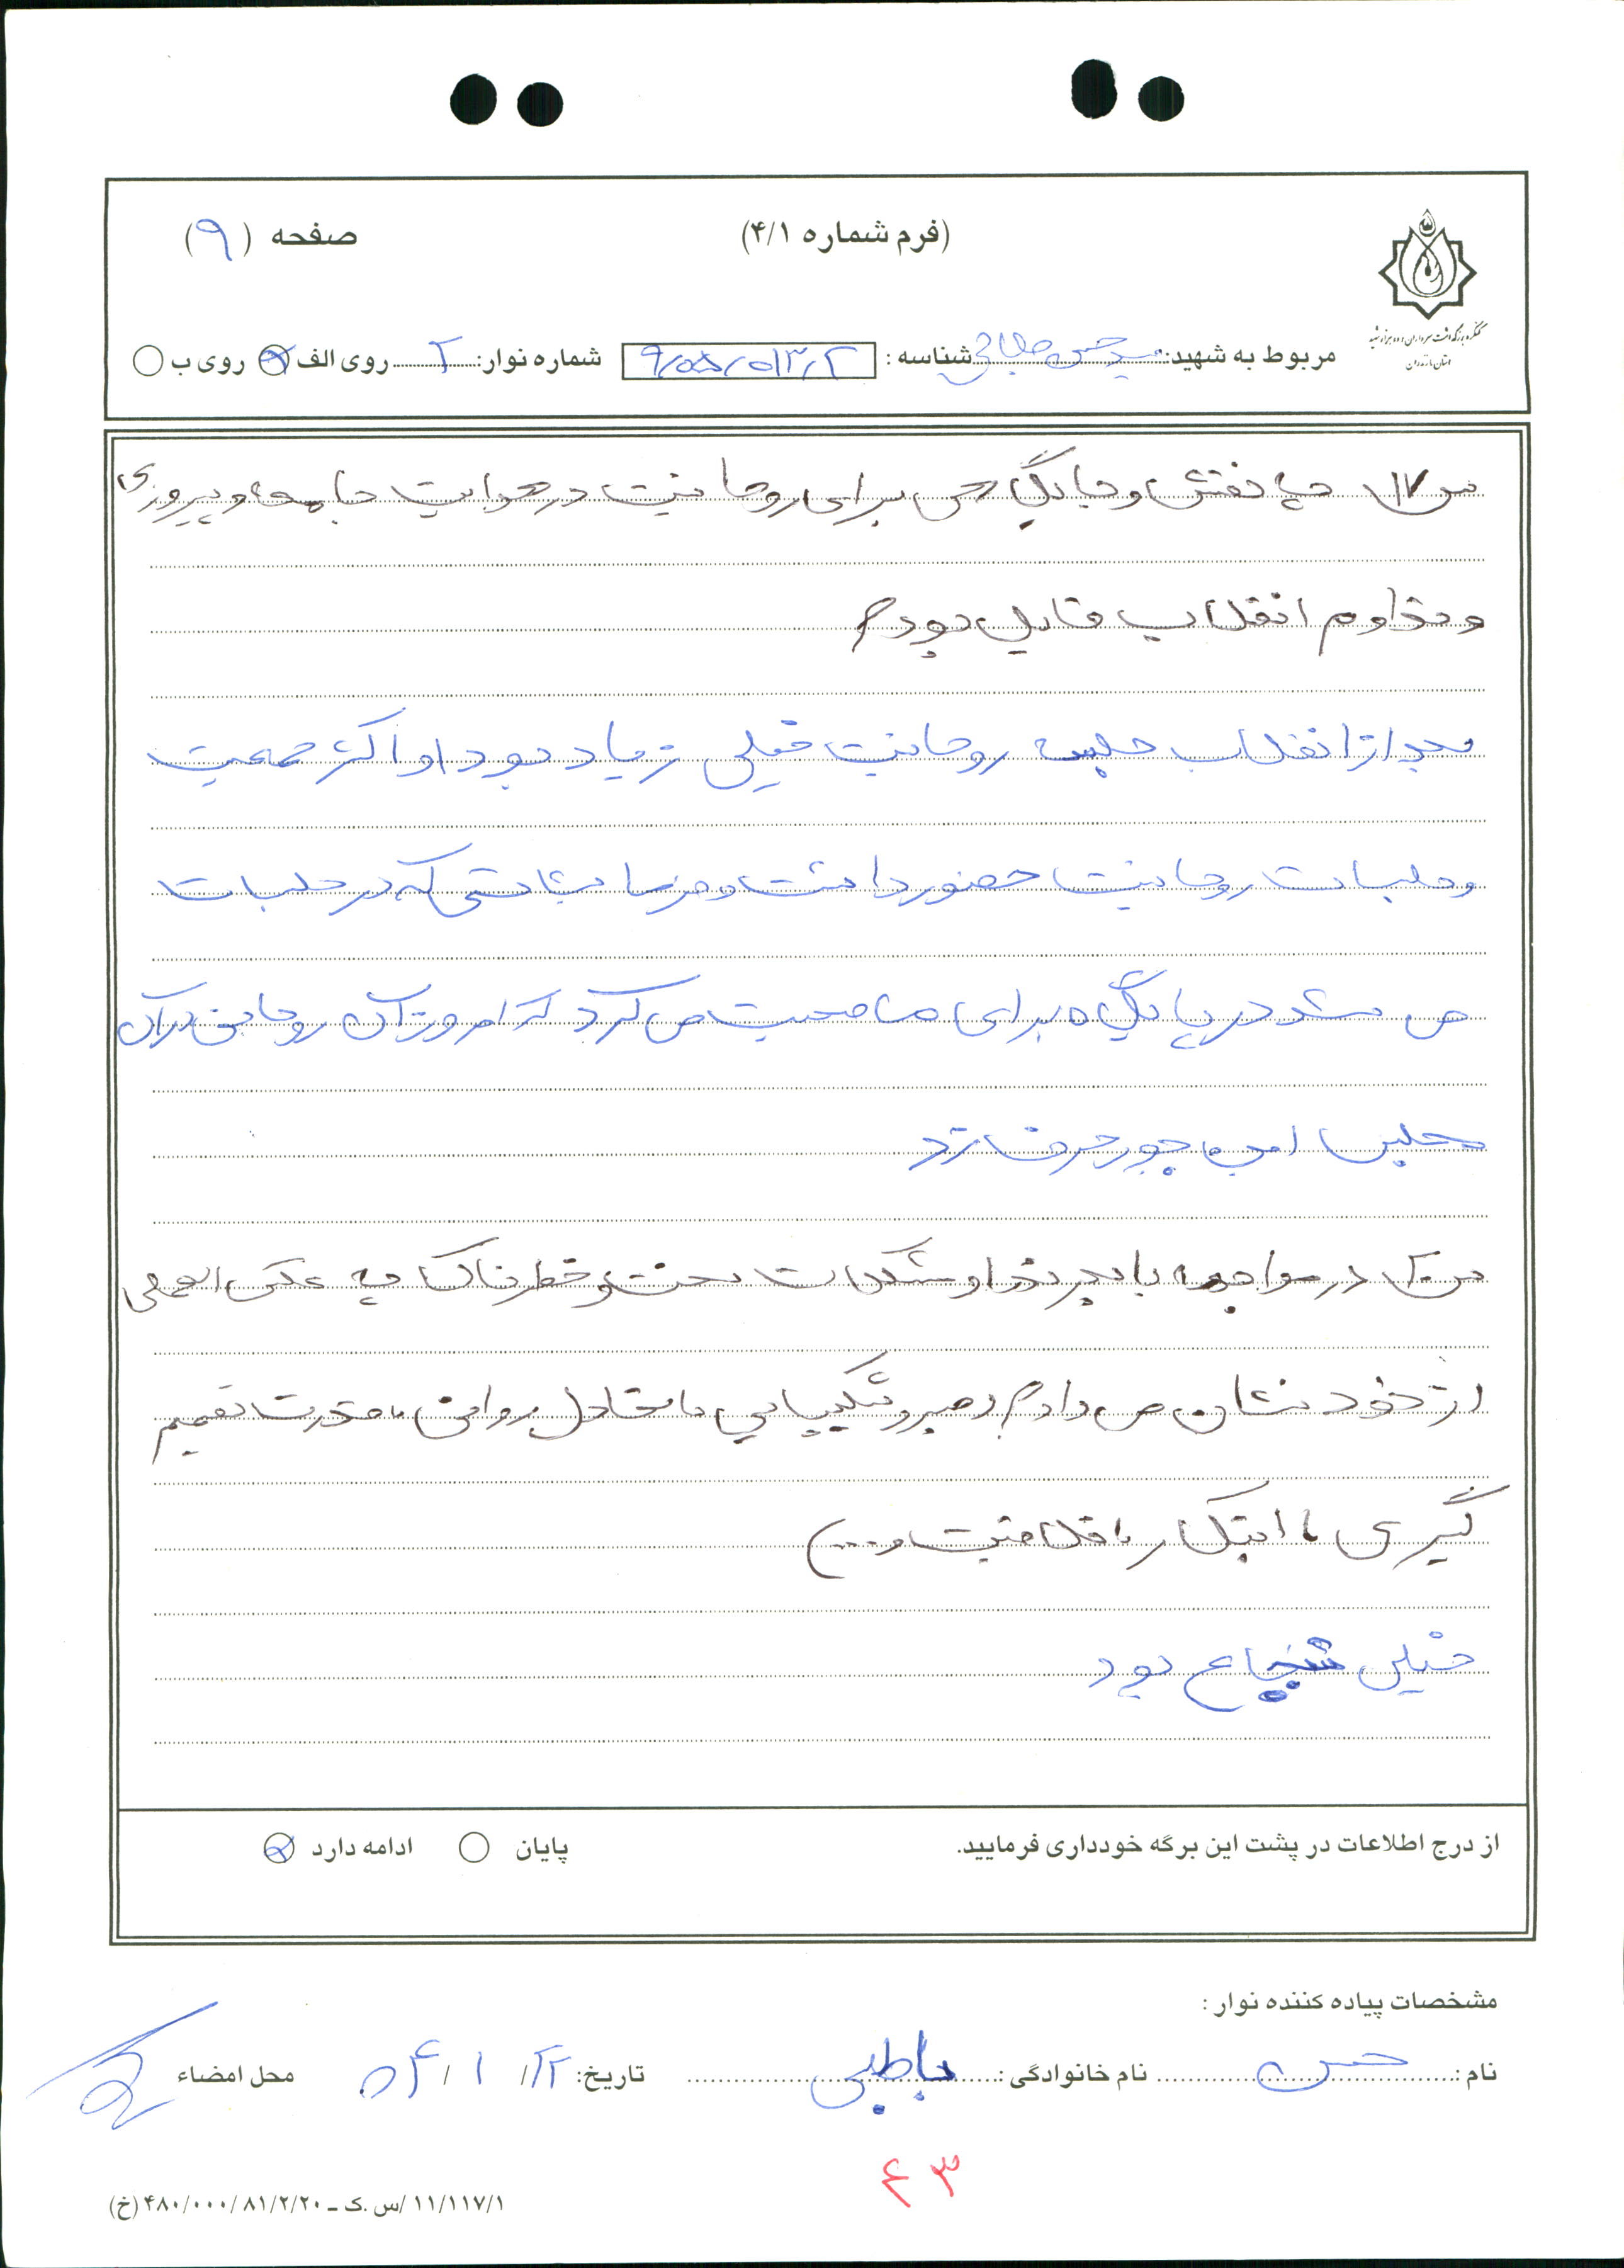 (فرم شماره ۴/۱)
صفحه (۹)
کنگره بزرگداشت سرداران و ده هزار شهید
استان مازندران
مربوط به شهید: سید حسن شناسه : شماره نوار: ۲ روی الف روی ب
س۱۷ چه نقش و جایگاهی برای روحانیت در هدایت جامعه و پیروزی
و تداوم انقلاب قایل بود؟
بعد از انقلاب جلسه روحانیت خیلی زیاد بود او اکثر جمعیت
و جلسات روحانیت حضور داشت و فرمایشاتی که در جلسات
می شد در پایگاه برای ما صحبت می کرد که امروز آن روحانی در آن
مجلس این جور حرف زد
س۲۰ در مواجهه با و مشکلات سخت و خطرناک چه عکس العملی
از خود نشان می داد؟ (صبر و شکیبایی، تعادل روانی، قدرت تصمیم
گیری، ابتکار، خلاقیت و ...)
خیلی شجاع بود
از درج اطلاعات در پشت این برگه خودداری فرمایید.
پایان ادامه دارد
مشخصات پیاده کننده نوار :
نام : حسن نام خانوادگی : باطبی تاریخ: ۲۲/ ۱ /۸۴ محل امضاء
۴۳
۱۱/۱۱۷/۱ /س .ک ـ ۴۸۰/۰۰۰/۸۱/۲/۲۰ (خ)